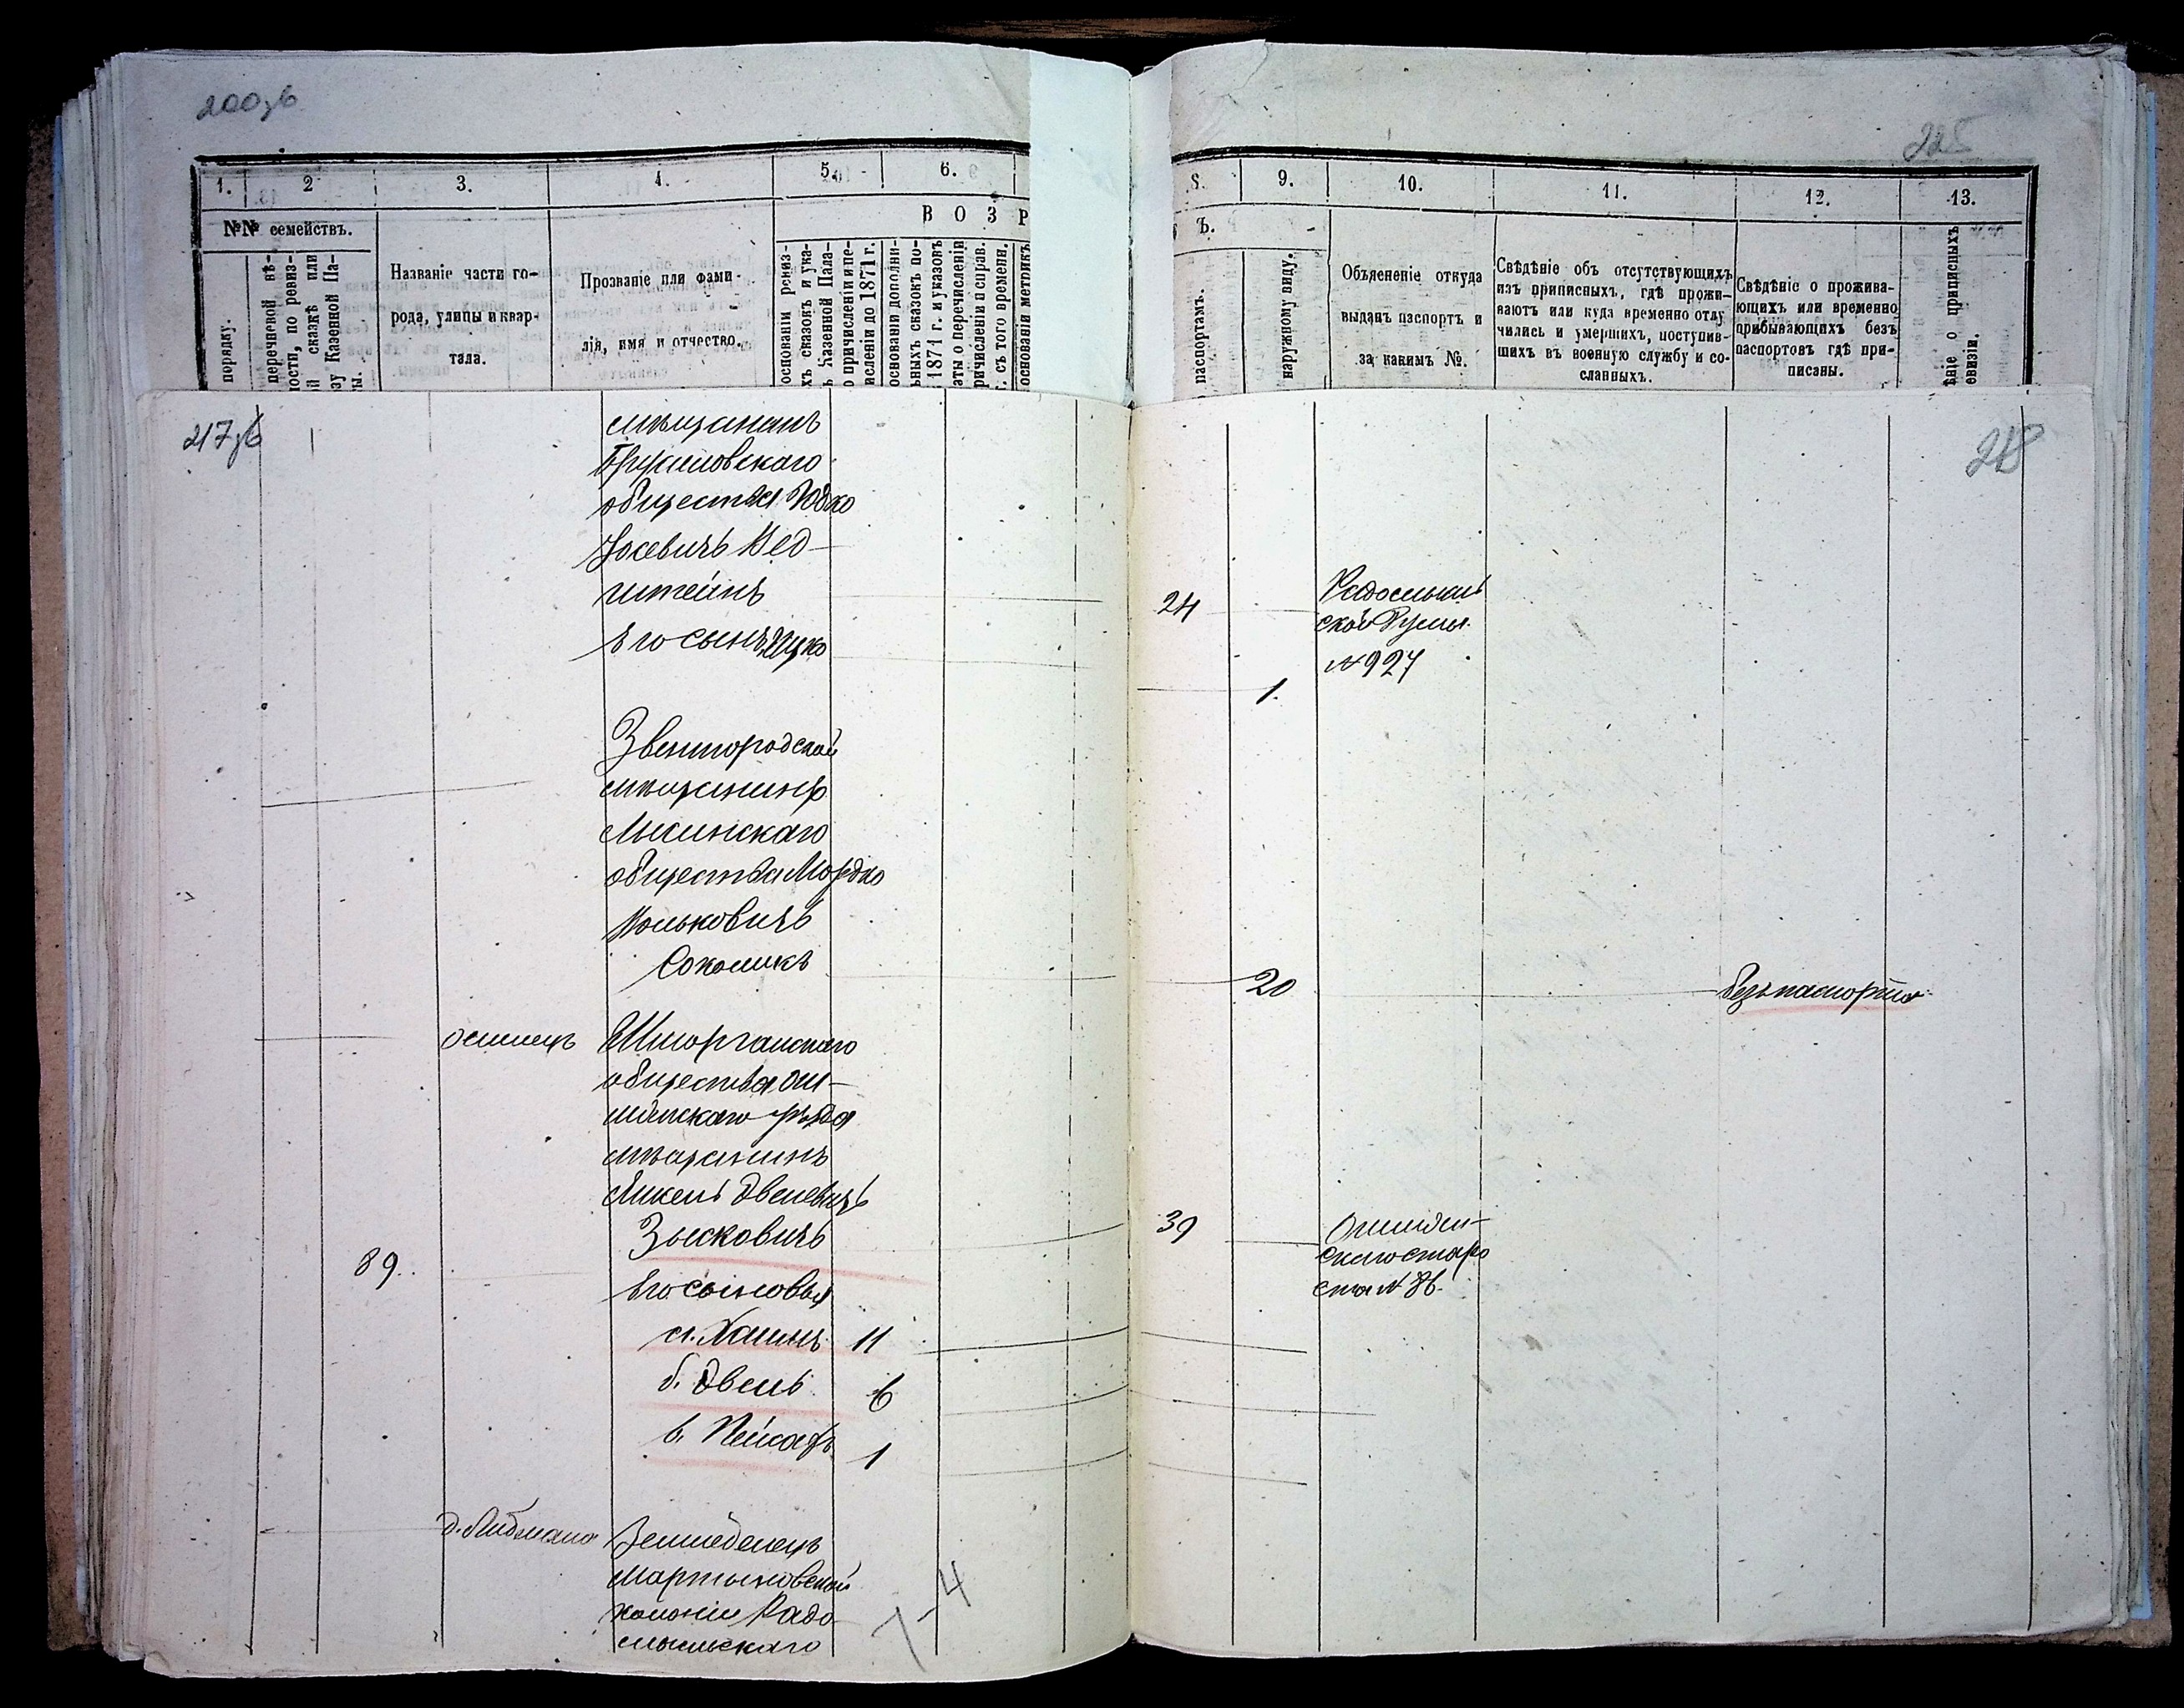 200об
225
1. 2 3. 4. 5. 6.
8. 9. 10. 11. 12. 13.
№№ семействъ.
В О З Р
Ъ.
порядку.
перечневой вѣ-
ности, по ревиз-
й сказкѣ или
зу Казенной Па-
ты.
Названіе части го-
рода, улицы и квар-
тала.
Прозваніе или фами-
лія, имя и отчество.
основаніи ревиз-
хъ сказокъ и ука-
ъ Казенной Пала-
о причисленіи и пе-
исленіи до 1871 г.
основаніи дополни-
ьныхъ сказокъ по-
1871 г. и указовъ
аты о перечисленіи
ричисленіи и справ.
. съ того времени.
основаніи метрикъ
паспортамъ.
наружному виду.
Объясненіе откуда
выданъ паспортъ и
за какимъ №.
Свѣдѣніе объ отсутствующихъ
изъ приписныхъ, гдѣ прожи-
ваютъ или куда временно отлу
чились и умершихъ, поступив-
шихъ въ военную службу и со-
сланныхъ.
Свѣдѣніе о прожива-
ющихъ или временно
прибывающихъ безъ
паспортовъ гдѣ при-
писаны.
ѣніе о приписныхъ
евизіи.
217об
218
мѣщанинъ
Брусиловскаго
общества Юдко
Іосевичъ Вед-
штейнъ
24
Радомысль
ской Думы
№ 927
Его сынъ Ицко
1.
Звенигородской
мѣщанинъ
Лисинскаго
общества Мордко
Вольковичъ
Соколикъ
20
безъ паспорта
Шморганскаго
общества Ош-
мянскаго уѣзда
мѣщанинъ
Янкель Овсеевичъ
Зысковичъ
39
Ошмян-
скаго старо
ста № 86.
89.
Его сыновья
а. Хаимъ 11
б. Овсей 6
в. Пейсахъ 1
д. Либмана
Земледелецъ
Мартыновской
колоніи Радо-
мысльскаго
1-4